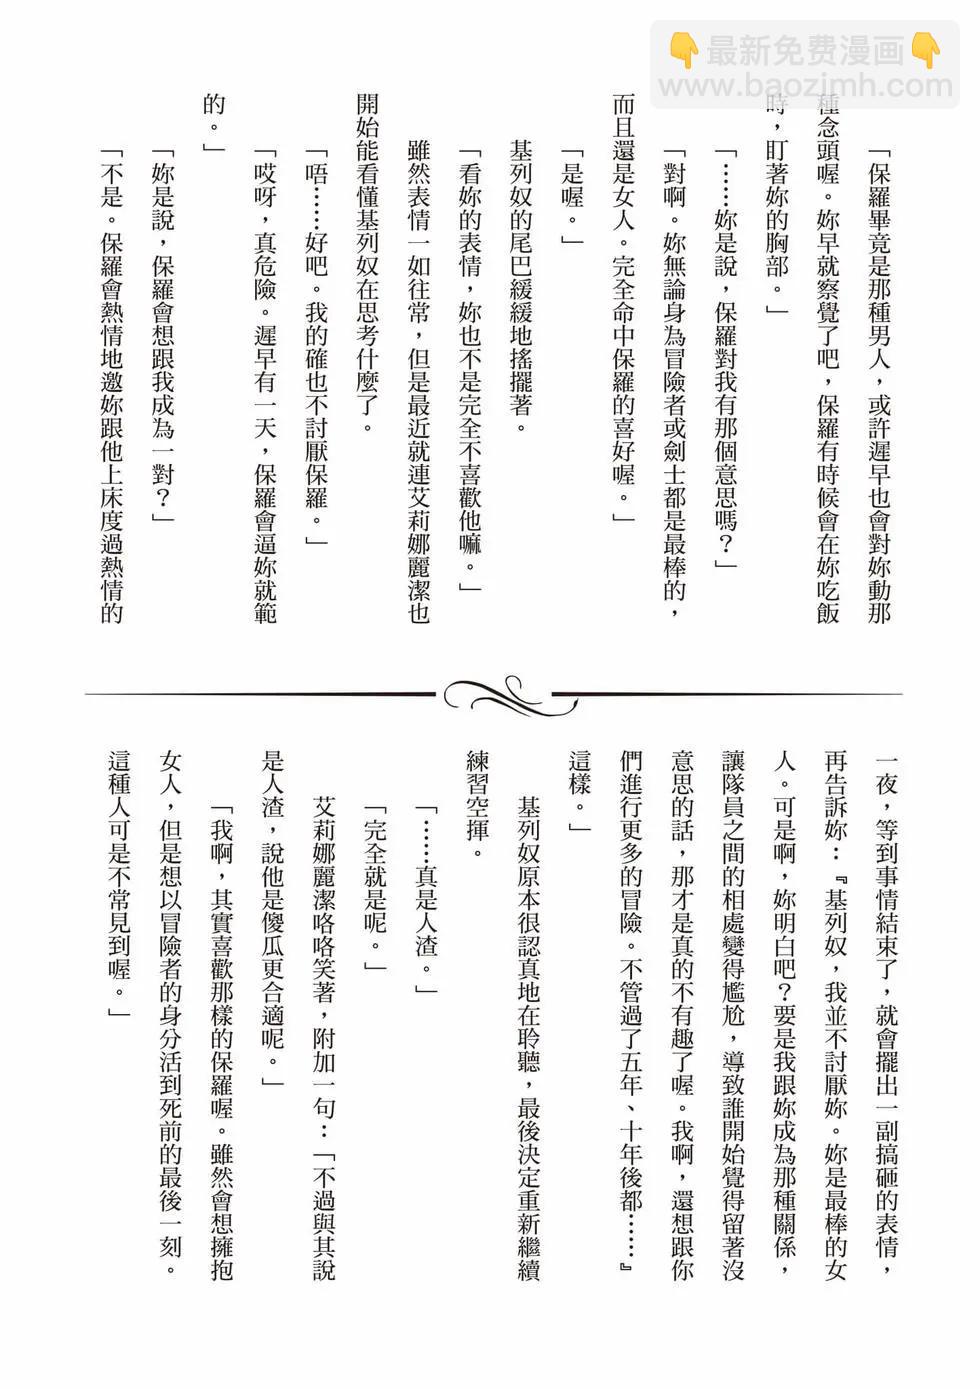 👇最新免费漫画👇
www.baozimh.com
「保羅畢竟是那種男人，或許遲早也會對妳動那
種念頭喔。妳早就察覺了吧，保羅有時候會在妳吃飯
時，盯著妳的胸部。」
「……妳是說，保羅對我有那個意思嗎？」
「對啊。妳無論身為冒險者或劍士都是最棒的，
而且還是女人。完全命中保羅的喜好喔。」
「是喔。」
基列奴的尾巴緩緩地搖擺著。
「看妳的表情，妳也不是完全不喜歡他嘛。」
雖然表情一如往常，但是最近就連艾莉娜麗潔也
開始能看懂基列奴在思考什麼了。
「唔……好吧。我的確也不討厭保羅。」
「哎呀，真危險。遲早有一天，保羅會逼妳就範
的。」
「妳是說，保羅會想跟我成為一對？」
「不是。保羅會熱情地邀妳跟他上床度過熱情的
一夜，等到事情結束了，就會擺出一副搞砸的表情，
再告訴妳：『基列奴，我並不討厭妳。妳是最棒的女
人。可是啊，妳明白吧？要是我跟妳成為那種關係，
讓隊員之間的相處變得尷尬，導致誰開始覺得留著沒
意思的話，那才是真的不有趣了喔。我啊，還想跟你
們進行更多的冒險。不管過了五年、十年後都……』
這樣。」
基列奴原本很認真地在聆聽，最後決定重新繼續
練習空揮。
「……真是人渣。」
「完全就是呢。」
艾莉娜麗潔咯咯笑著，附加一句：「不過與其說
是人渣，說他是傻瓜更合適呢。」
「我啊，其實喜歡那樣的保羅喔。雖然會想擁抱
女人，但是想以冒險者的身分活到死前的最後一刻。
這種人可是不常見到喔。」